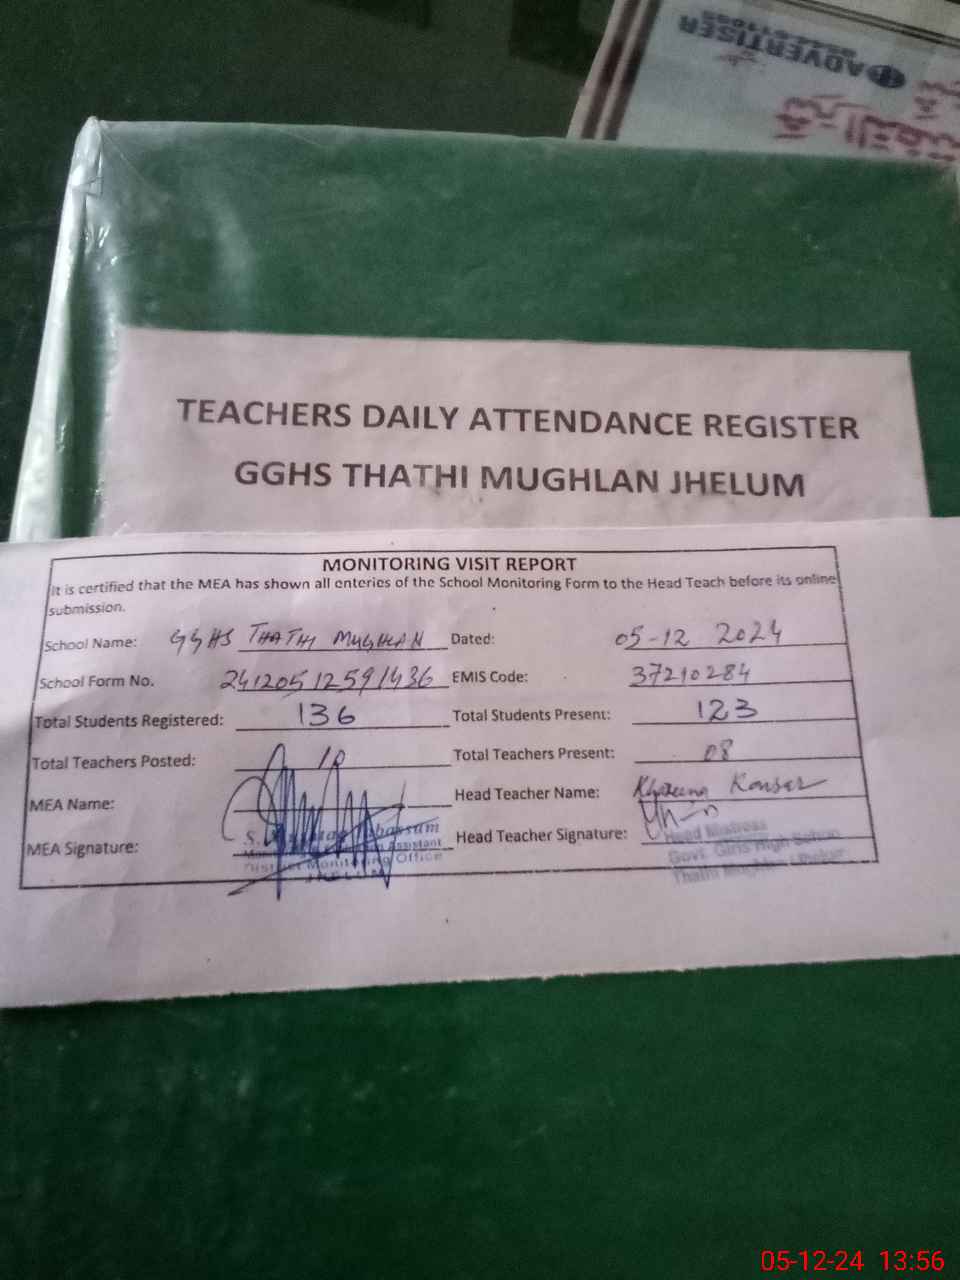 ADVERTISER
TEACHERS DAILY ATTENDANCE REGISTER
GGHS THATHI MUGHLAN JHELUM
MONITORING VISIT REPORT
It is certified that the MEA has shown all enteries of the School Monitoring Form to the Head Teach before its online
submission.
School Name: GGHS THATHI MUGHLAN Dated: 05-12 2024
School Form No. 24120512591436 EMIS Code: 37210284
Total Students Registered: 136 Total Students Present: 123
Total Teachers Posted: 10 Total Teachers Present: 08
MEA Name: Head Teacher Name: Kousar
MEA Signature: Head Teacher Signature:
Assistant
District Monitoring Office
JHELUM
Head Mistress
Govt. Girls High School
Thathi
05-12-24 13:56